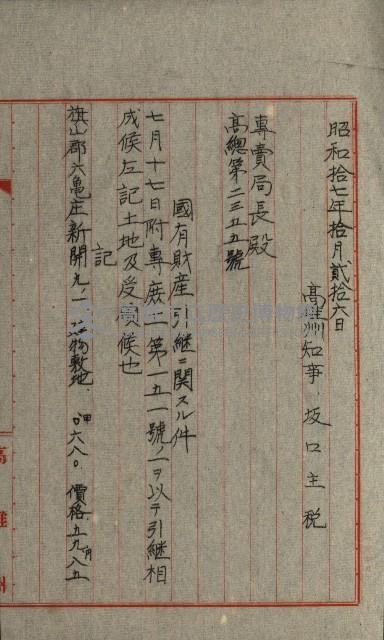 昭和拾七年拾月貳拾六日
高雄州知事 坂口主税
專賣局長殿
高總第二三五五號
國有財産引継ニ関スル件
七月十七日附專庶二第一五一號ノ一ヲ以テ引継相
成候左記土地及受領候也
記
旗山郡六龜庄新開九ノ一 建物敷地、 甲〇六八〇 價格五九円八五
高雄州